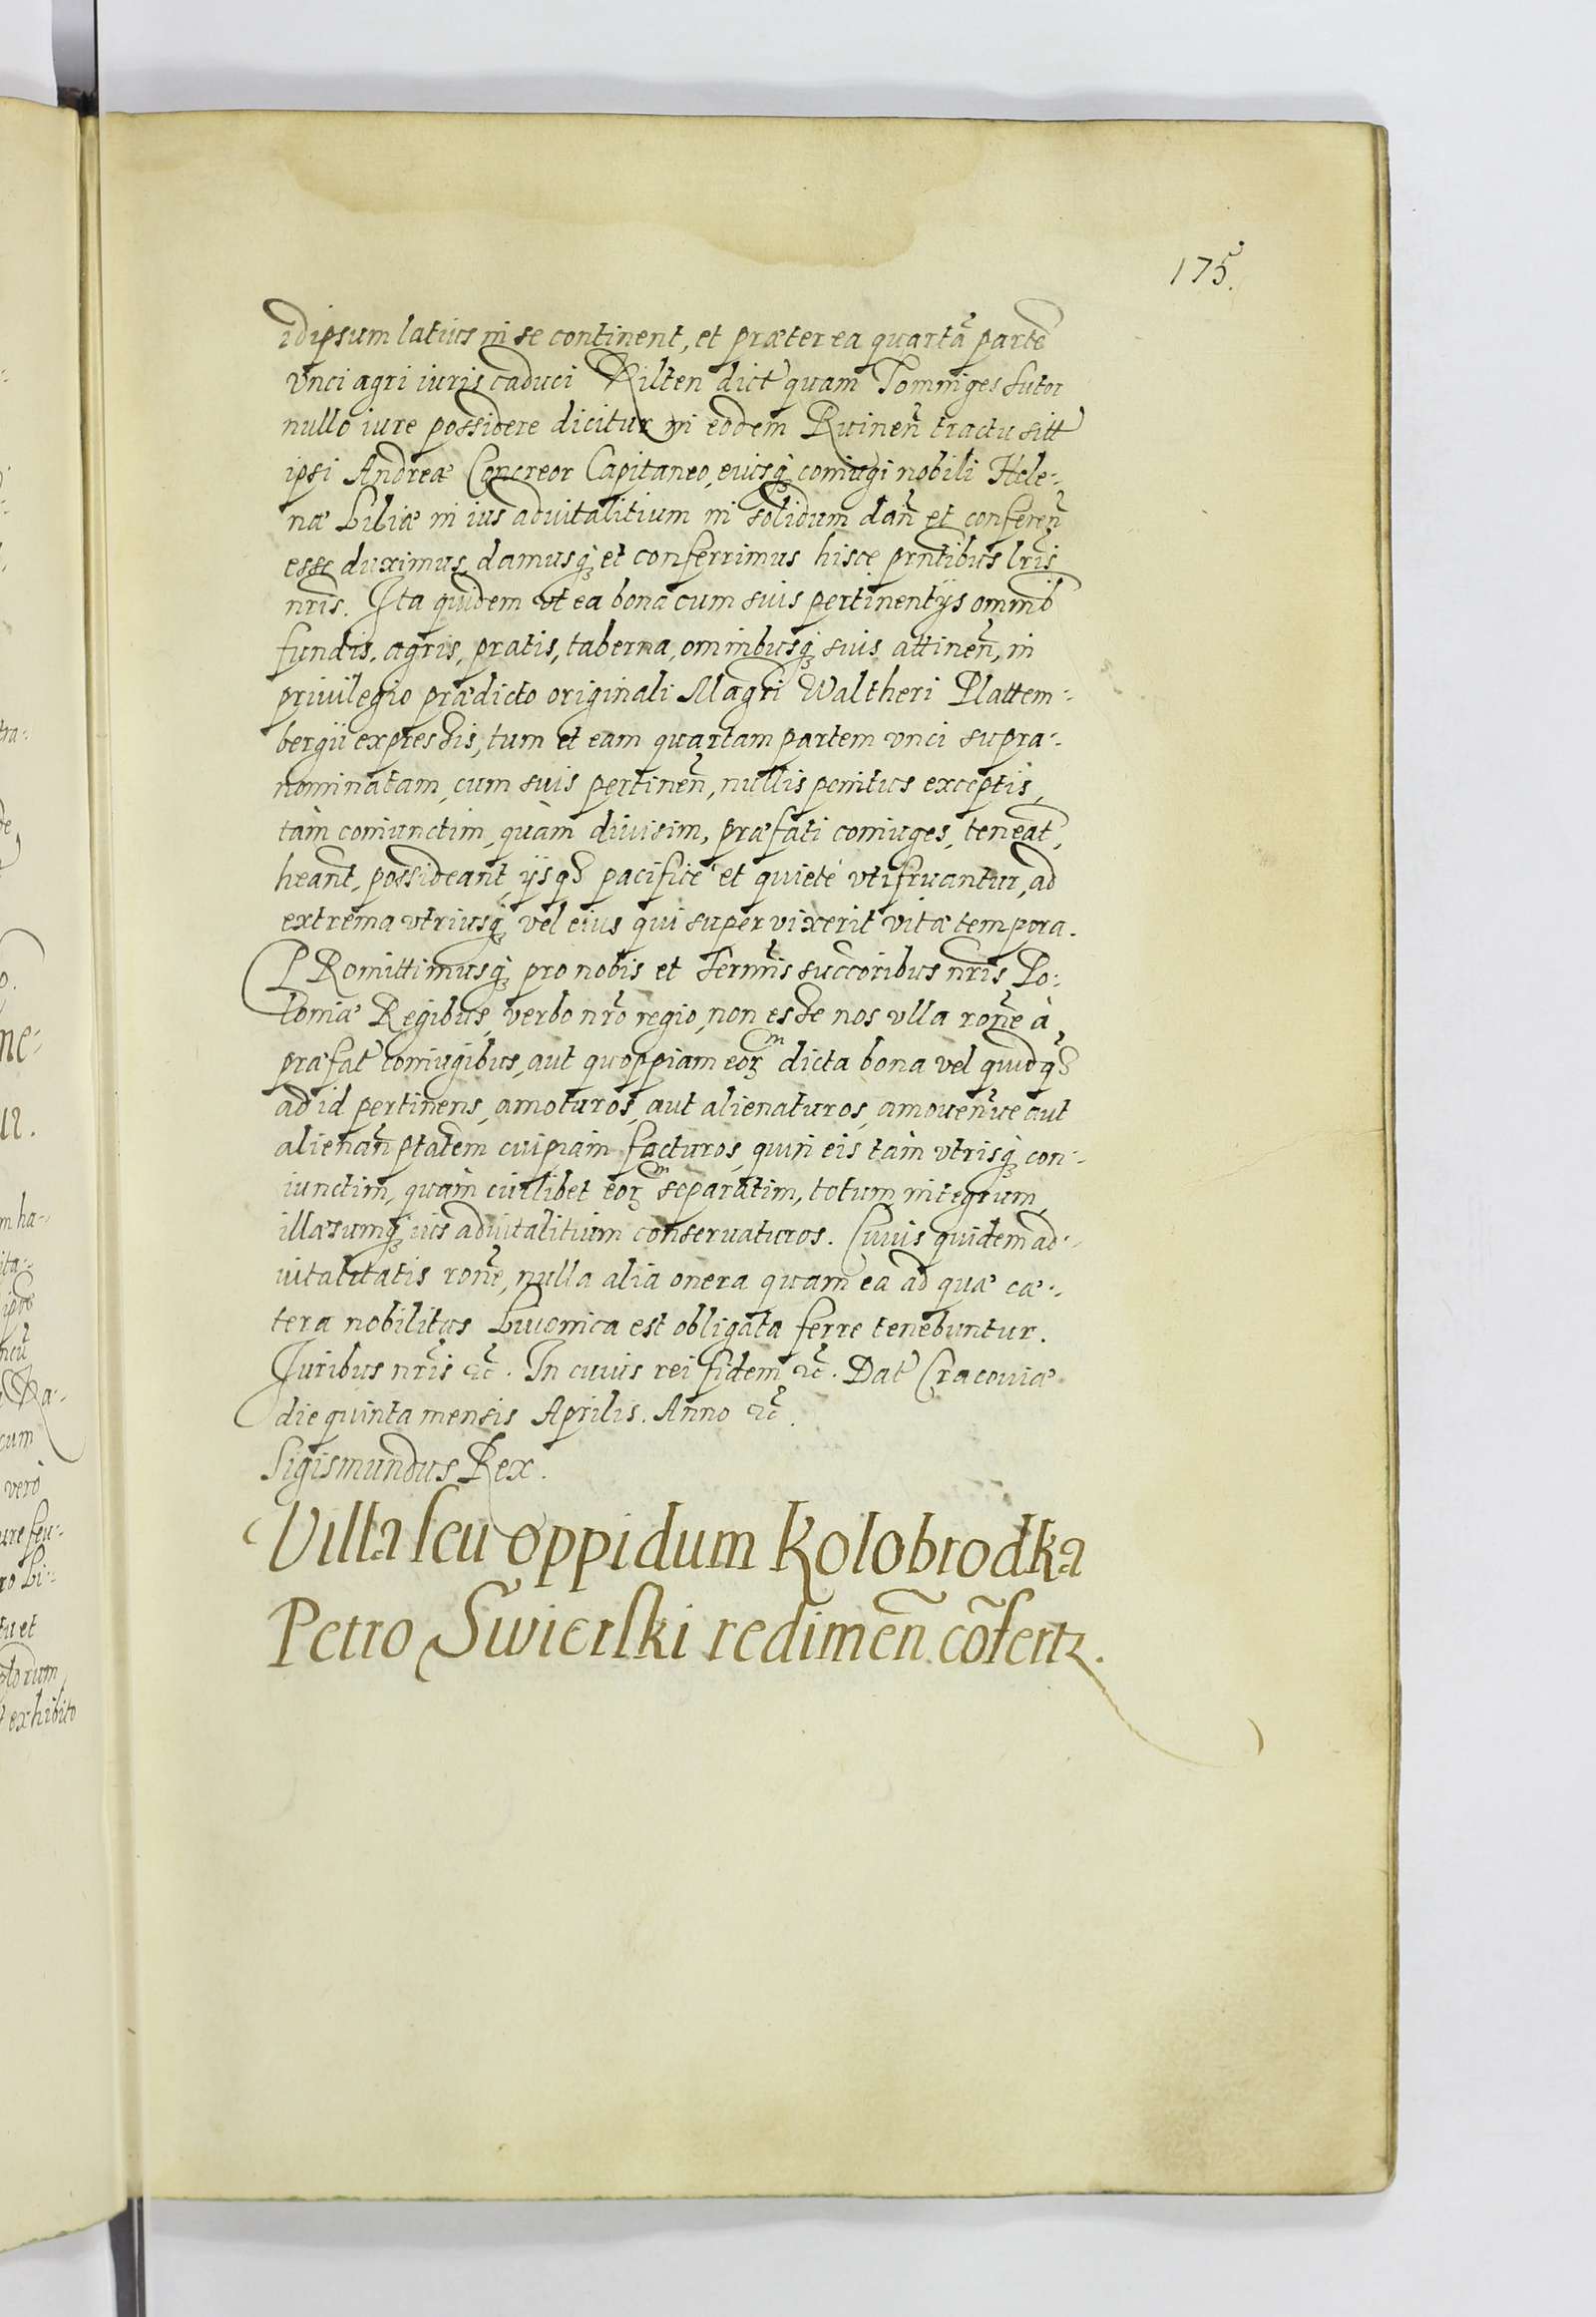 175.
idipsum latius in se continent, et præterea quartã partẽ
vnci agri iuris caduci Rilten dict quam Tommiges sutor
nullo iure possidere dicitur in eodem Ruinen̄ tractu sitt
ipsi Andreæ Concreor Capitaneo, eiusq; coniugi nobili Hele-
næ Liliæ in ius aduitalitium in solidum dan̄ et conferen̄
esse duximus, damusq; et conferrimus hisce prñtibus lrĩs
nrĩs. Ita quidem vt ea bona cum suis pertinentijs omnib
fundis, agris, pratis, taberna, omnibusq; suis attinen̄, in
priuilegio prædicto originali Magrĩ Waltheri Plattem-
bergii expressis, tum et eam quartam partem vnci supra-
nominatam, cum suis pertinen̄, nullis penitus exceptis,
tàm coniunctim, quàm diuisim, præfati coniuges, teneãt,
heãnt, possideant, ijsq3 pacificè et quietè vtifruantur, ad
extrema vtriusq; vel eius qui supervixerit vitæ tempora.
PRomittimusq; pro nobis et Serm̃is succoribus nrĩs Po-
loniæ Regibus, verbo nrõ regio, non esse nos vlla ronẽ à
præfat coniugibus, aut quoppiam eoꝝ dicta bona vel quidq3
ad id pertinens, amoturos, aut alienaturos, amouen̄ue aut
alienan̄ ptatem cuipiam facturos, quin eis tàm vtrisq; con-
iunctim, quàm cuilibet eoꝝ separatim, totum integrum,
illæsumq; ius aduitalitium conseruaturos. Cuius quidem ad-
uitalitatis ronẽ, nulla alia onera quam ea ad quæ cæ-
tera nobilitas Liuonica est obligata ferre tenebuntur.
Iuribus nrĩs &c̃. In cuius rei fidem &c̃. Dat Cracouiæ
die quinta mensis Aprilis. Anno &c̃.
Sigismundus Rex.
Villa seu oppidum Kolobrodka
Petro Swierski redimen̄ cõfertꝛ.